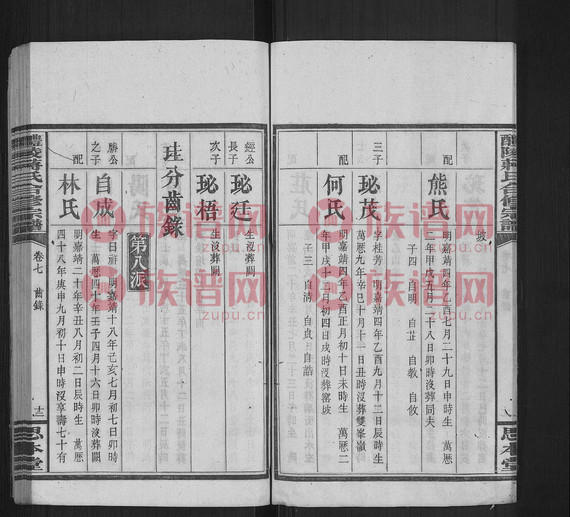 醴陵蔣氏合修宗譜
思本堂
坡
配
熊氏
明嘉靖四年乙酉七月二十九日申時生 萬歷
二年甲戌五月二十八日卯時沒葬同夫
子四 自明 自芷 自教 自攸
三子
珌茂
字桂芳 明嘉靖四年乙酉九月十二日辰時生
萬歷九年辛巳十月十一日丑時沒葬雙峯嶺
配
何氏
明嘉靖四年乙酉正月初十日未時生 萬歷二
年甲戌十二月初四日戌時沒葬窰坡
子三 自清 自貞 自誥
經公
長子
珌廷
生沒葬闕
次子
珌梧
生沒葬闕
珪分齒錄
第八派
勝公
之子
自成
字日 明嘉靖十八年己亥七月初七日卯時
生 萬歷四十年壬子四月十六日卯時沒葬闕
配
林氏
明嘉靖二十年辛丑八月初二日辰時生 萬歷
四十八年庚申九月初十日申時沒享壽七十有
醴陵蔣氏合修宗譜
卷七 齒錄
十二
思本堂
族谱网
zupu.cn
族谱网
zupu.cn
族谱网
zupu.cn
族谱网
zupu.cn